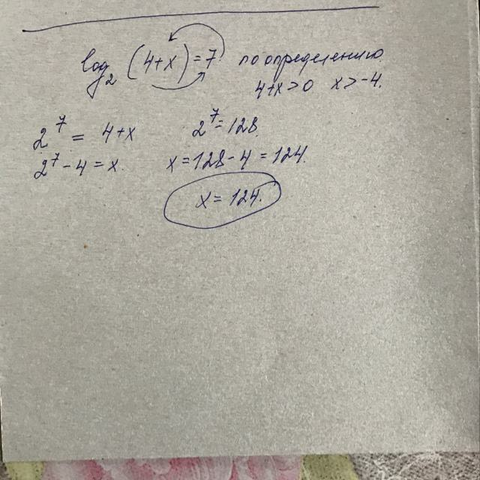 log₂(4+x)=7 по определению
4+x>0 x>-4.
2⁷ = 4+x 2⁷=128.
2⁷-4=x. x=128-4=124.
x=124.